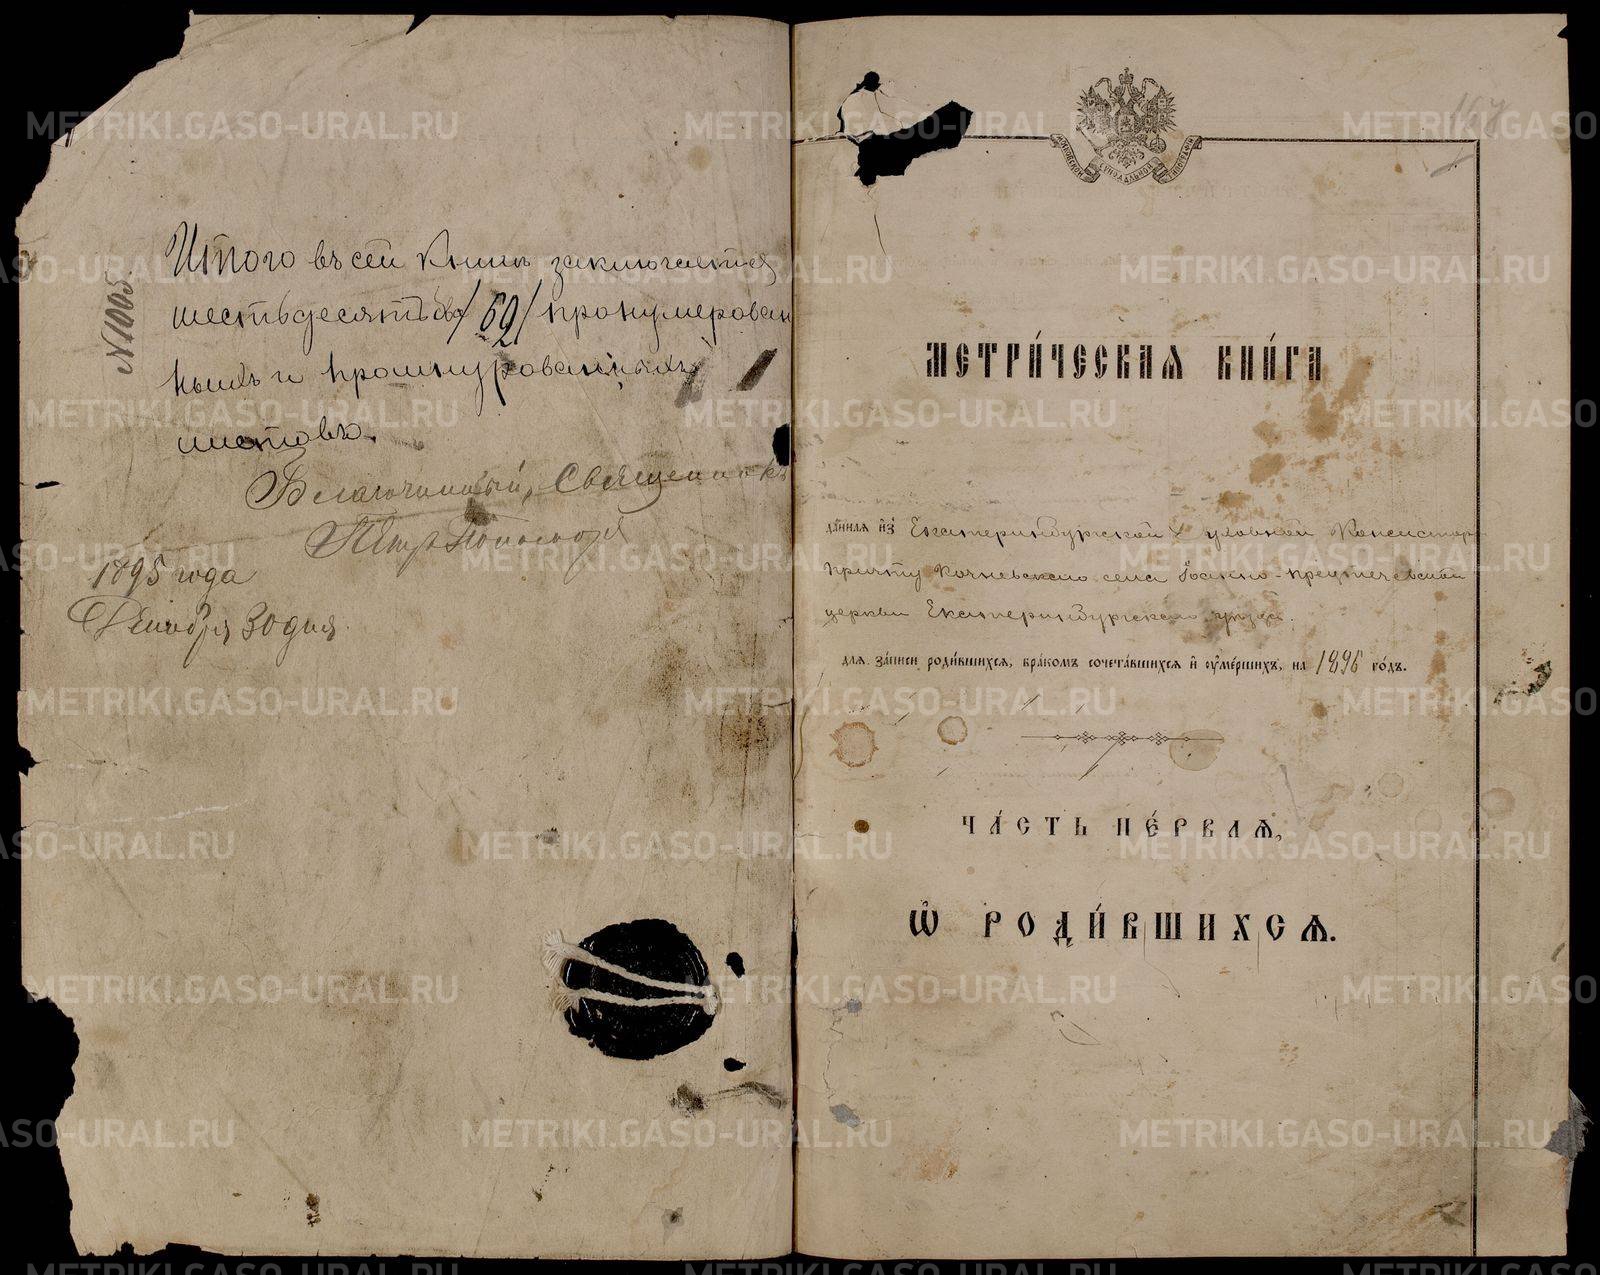 №1005.
Итого въ сей Книгѣ заключается
шестьдесятъ два /62/ пронумерован
ныхъ и прошнурованныхъ
листовъ.
Благочинный, Священникъ
Петръ
1895 года
Декабря 30 дня.
167
МОСКОВСКОЙ СѴНОДАЛЬНОЙ ТИПОГРАФІИ
МЕТРИ́ЧЕСКАѦ КНИ́ГА
да́ннаѧ и҆з̾ Екатеринбургской Духовной Консистор
причту Кочневскаго села Іоанно-Предтечевской
церкви Екатеринбургскаго уѣзда.
длѧ за́писи роди́вшихсѧ, бра́комъ сочета́вшихсѧ и҆ ᲂу҆ме́ршихъ, на 1896 го́дъ.
ЧА́СТЬ ПЕ́РВАѦ,
Ѡ҆ РОДИ́ВШИХСѦ.
METRIKI.GASO-URAL.RU